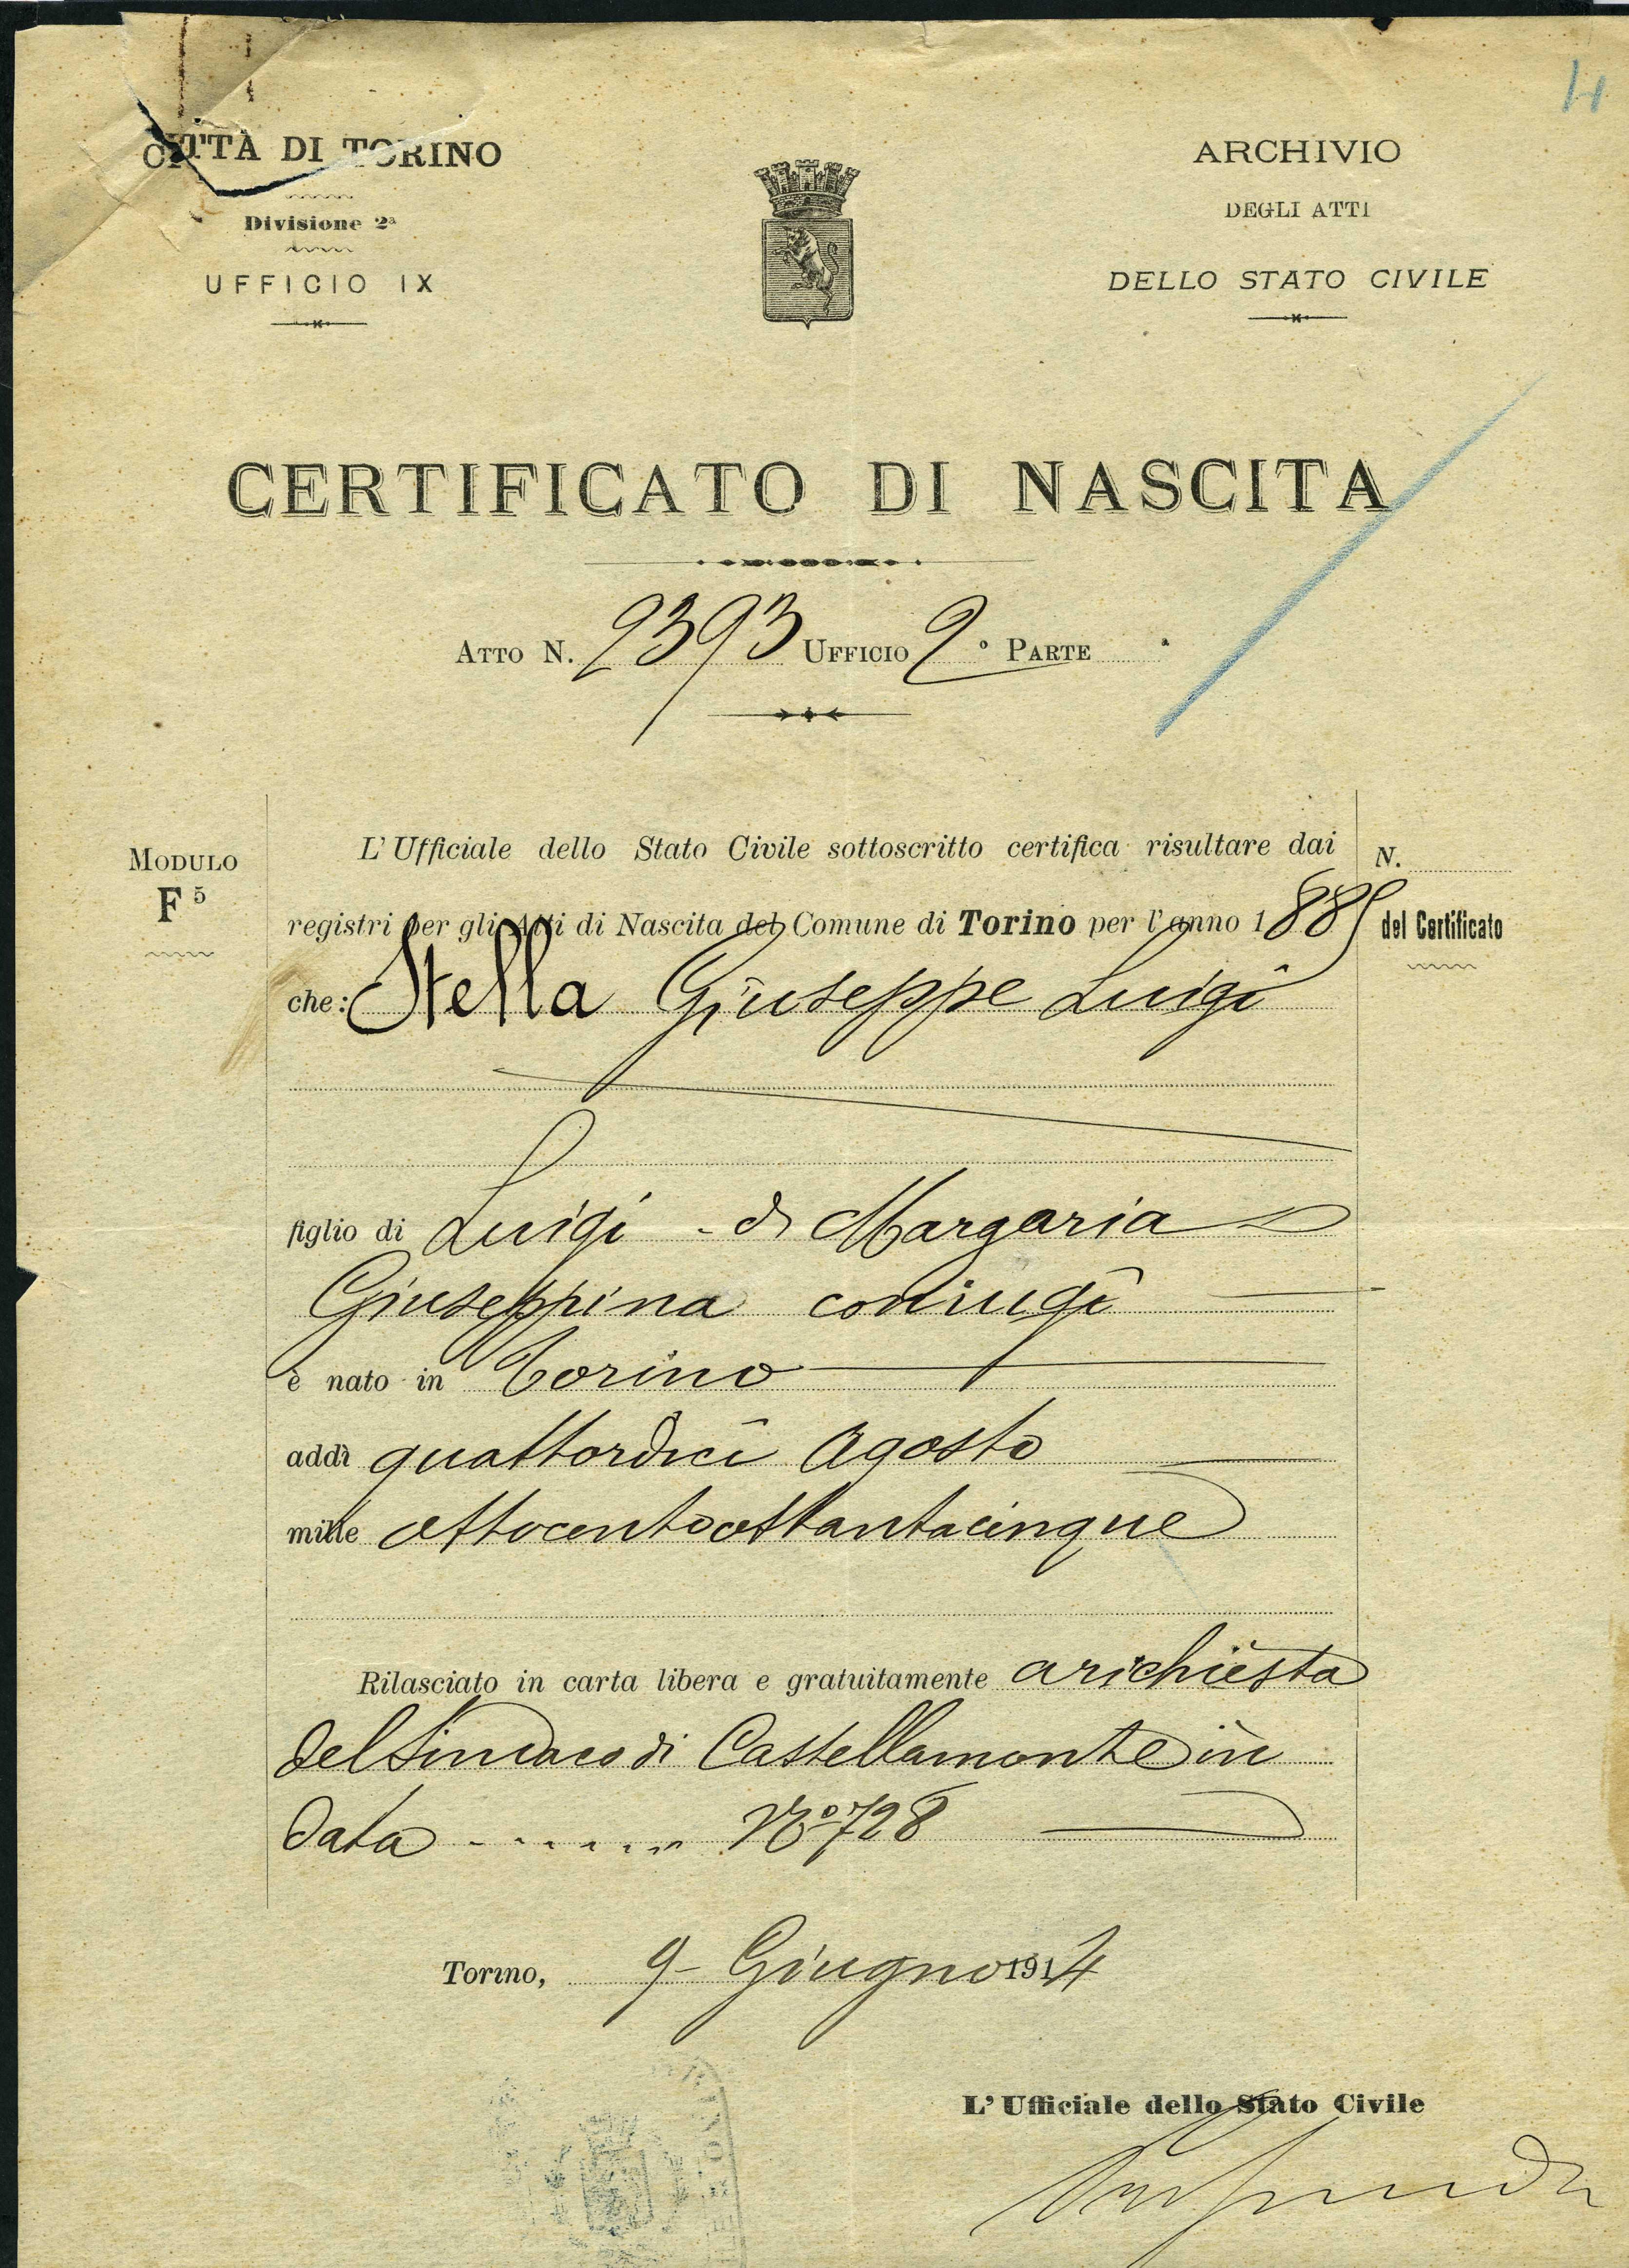 4
CITTÀ DI TORINO
Divisione 2ª
UFFICIO IX
ARCHIVIO
DEGLI ATTI
DELLO STATO CIVILE
CERTIFICATO DI NASCITA
ATTO N. 2393 UFFICIO 2° PARTE
MODULO
F⁵
L'Ufficiale dello Stato Civile sottoscritto certifica risultare dai
registri per gli Atti di Nascita del Comune di Torino per l'anno 1885
che: Stella Giuseppe Luigi
N.
del Certificato
figlio di Luigi - di Margaria
Giuseppina coniugi
è nato in Torino
addì quattordici Agosto
mille ottocentoottantacinque
Rilasciato in carta libera e gratuitamente a richiesta
del Sindaco di Castellamonte in
data - - - - - - - N° 728
Torino, 9 - Giugno 1914
L'Ufficiale dello Stato Civile